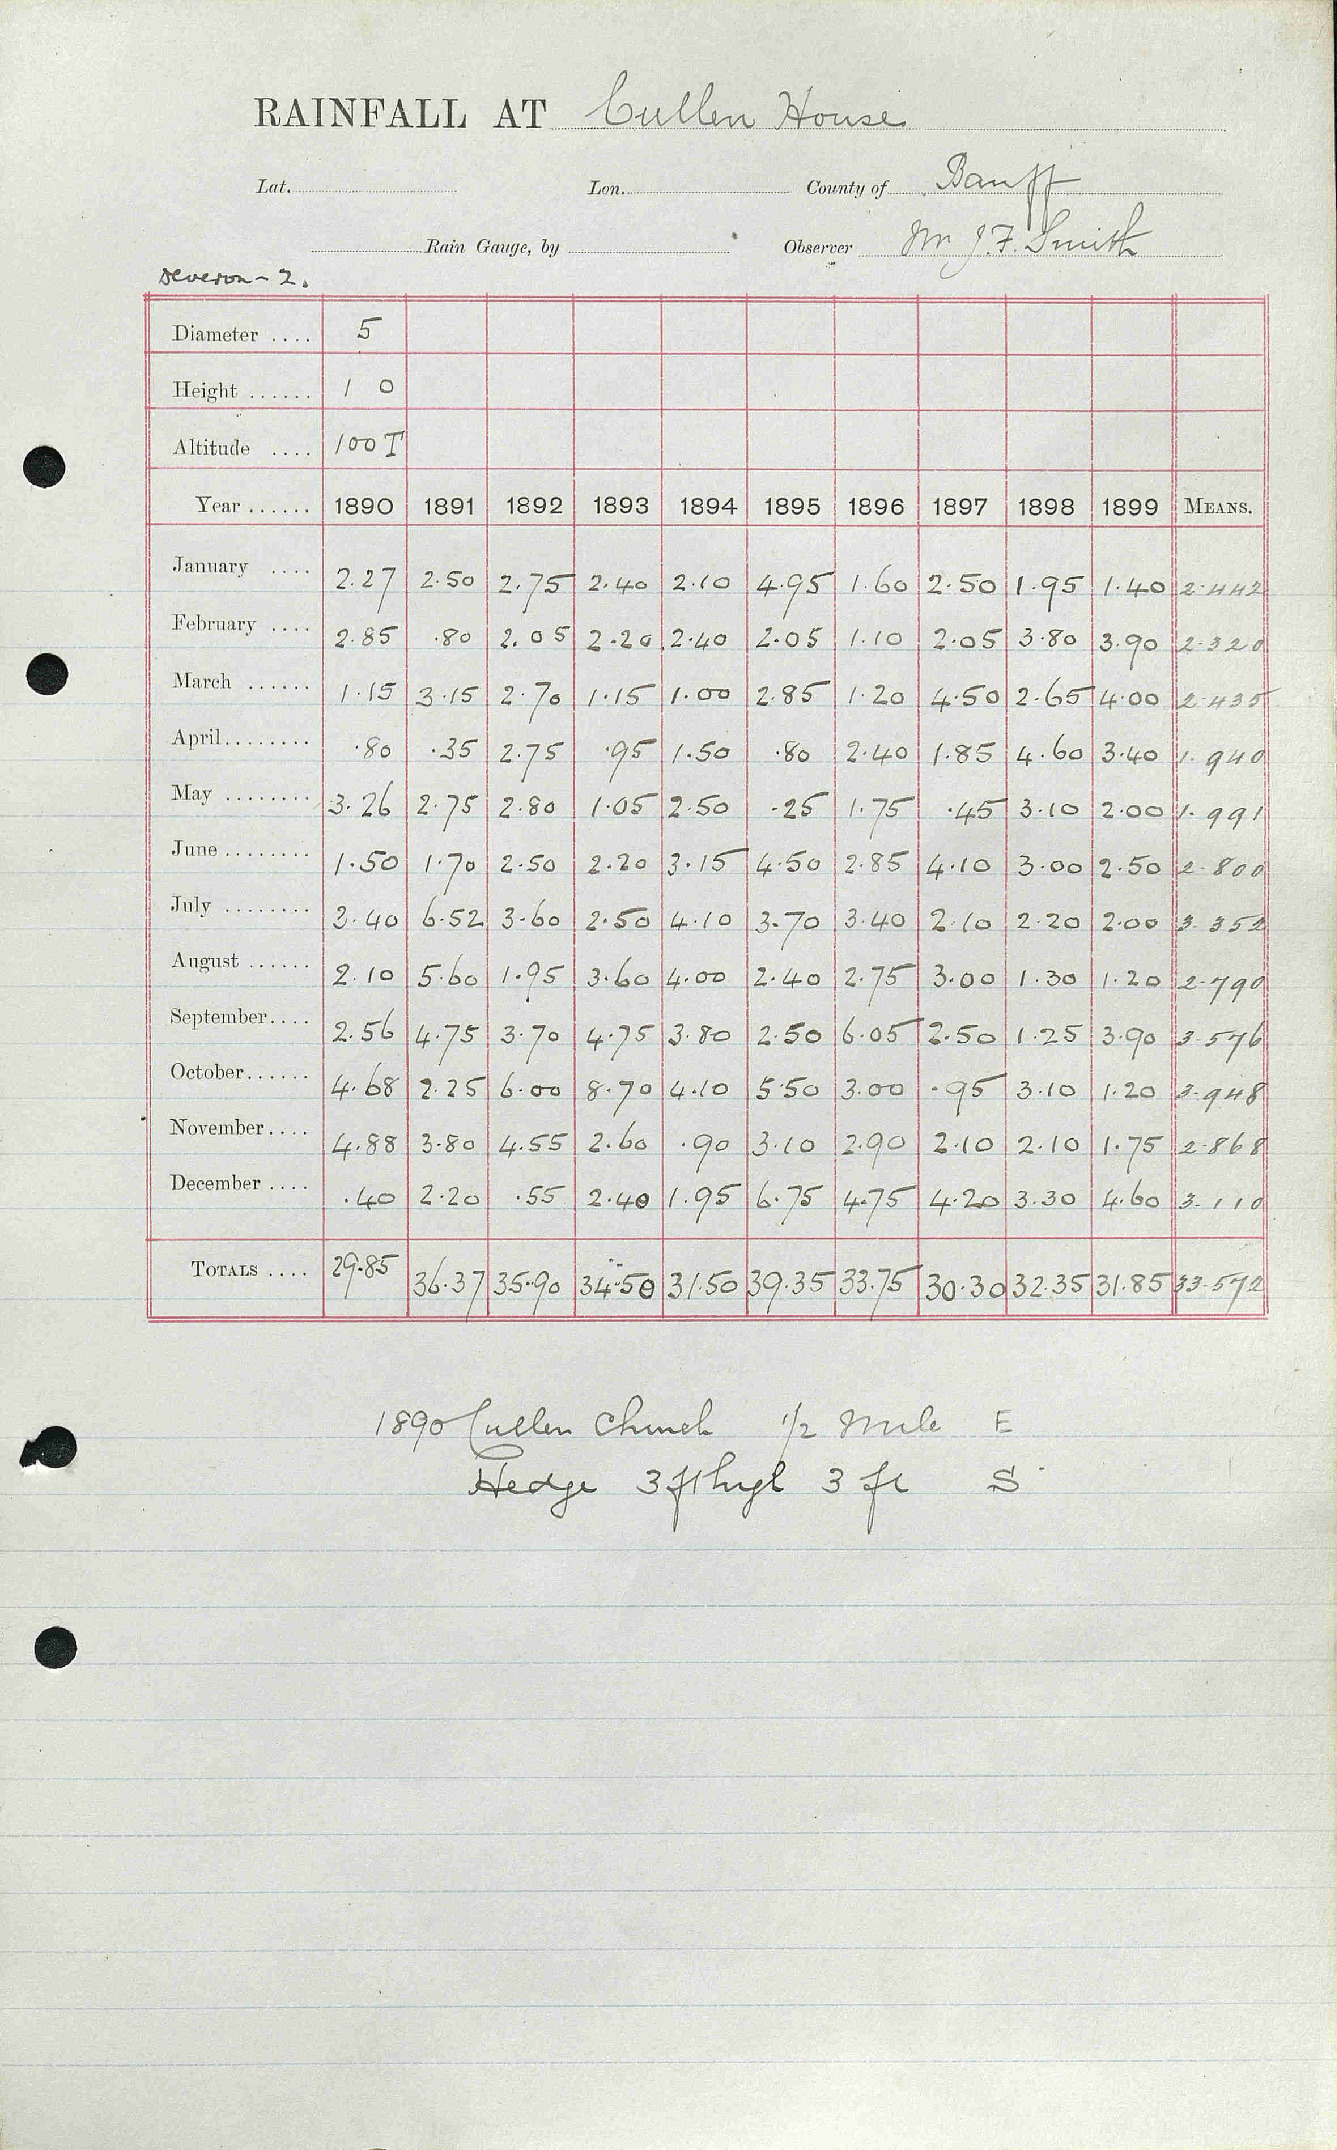 RAINFALL AT Cullen House
Lat. Lon. County of Banff
Rain Gauge, by Observer Mr J. F. Smith
Deveron - 2.
Diameter .... 5
Height ...... 1 0
Altitude .... 100 T
Year ...... 1890 1891 1892 1893 1894 1895 1896 1897 1898 1899 MEANS.
January .... 2.27 2.50 2.75 2.40 2.10 4.95 1.60 2.50 1.95 1.40 2.442
February .... 2.85 .80 2.05 2.20 2.40 2.05 1.10 2.05 3.80 3.90 2.320
March ...... 1.15 3.15 2.70 1.15 1.00 2.85 1.20 4.50 2.65 4.00 2.435
April........ .80 .35 2.75 .95 1.50 .80 2.40 1.85 4.60 3.40 1.940
May ........ 3.26 2.75 2.80 1.05 2.50 .25 1.75 .45 3.10 2.00 1.991
June ........ 1.50 1.70 2.50 2.20 3.15 4.50 2.85 4.10 3.00 2.50 2.800
July ........ 3.40 6.52 3.60 2.50 4.10 3.70 3.40 2.10 2.20 2.00 3.352
August ...... 2.10 5.60 1.95 3.60 4.00 2.40 2.75 3.00 1.30 1.20 2.790
September.... 2.56 4.75 3.70 4.75 3.80 2.50 6.05 2.50 1.25 3.90 3.576
October...... 4.68 2.25 6.00 8.70 4.10 5.50 3.00 .95 3.10 1.20 3.948
November.... 4.88 3.80 4.55 2.60 .90 3.10 2.90 2.10 2.10 1.75 2.868
December .... .40 2.20 .55 2.40 1.95 6.75 4.75 4.20 3.30 4.60 3.110
TOTALS .... 29.85 36.37 35.90 34.50 31.50 39.35 33.75 30.30 32.35 31.85 33.572
1890 Cullen Church 1/2 Mile E
Hedge 3 ft high 3 ft S